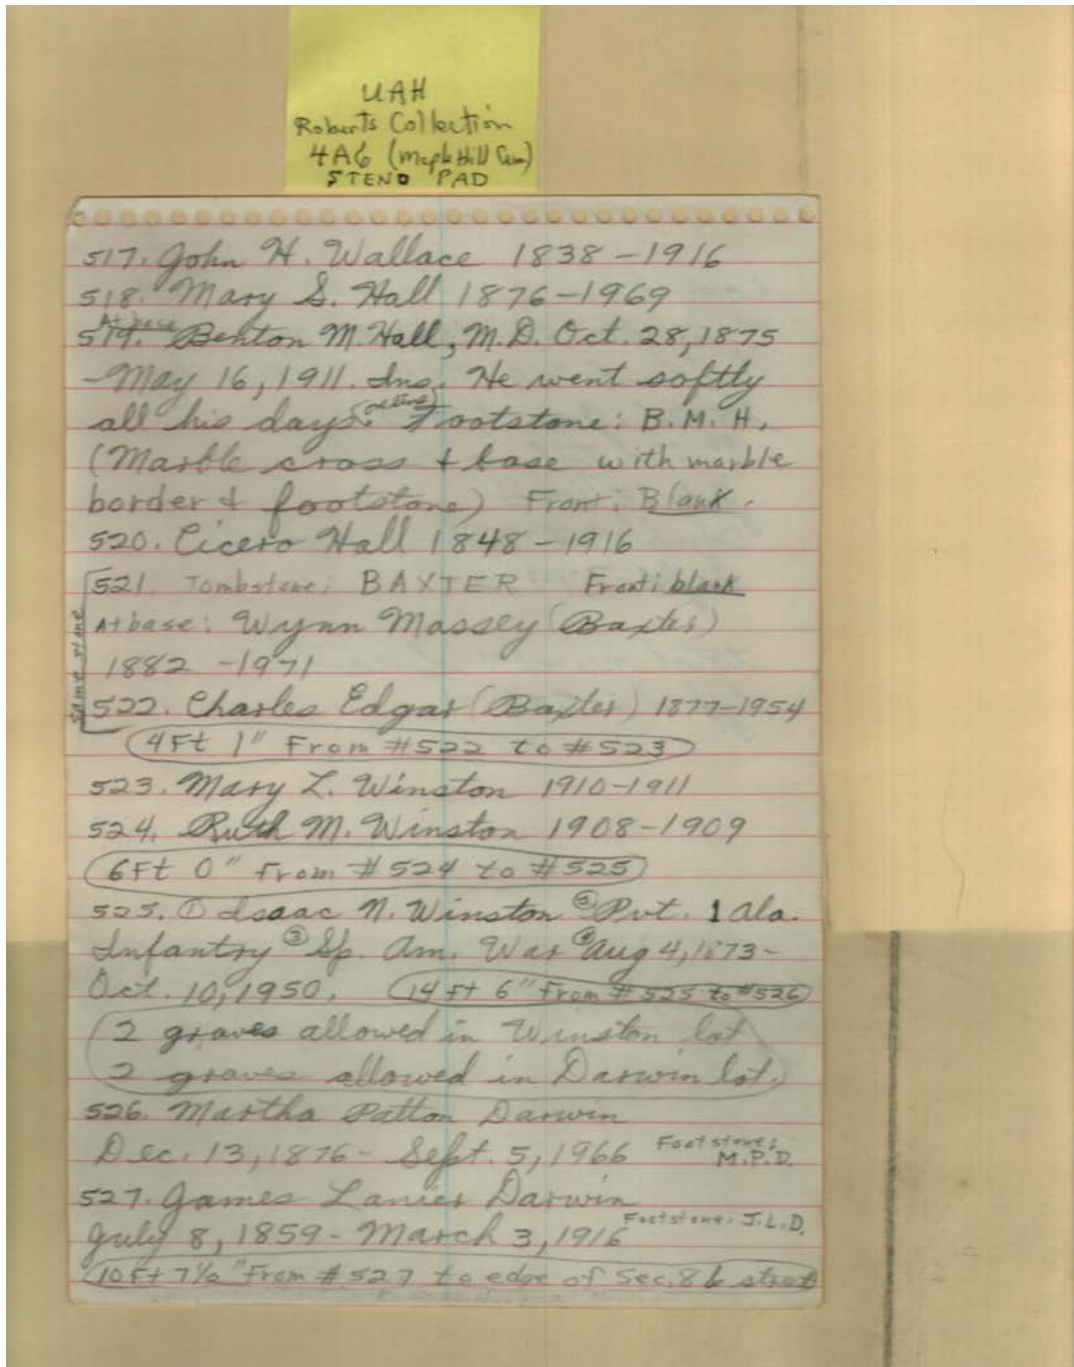 UAH
Roberts Collection
4A6 (Maple Hill Cem)
STENO PAD
517. John H. Wallace 1838-1916
518. Mary S. Hall 1876-1969
At base
519. Benton M Hall, M.D. Oct. 28, 1875
-May 16, 1911. Ins. He went softly
all his days. Footstone: B.M.H.
(Marble cross & base with marble
border & footstone) Front: Blank.
520. Cicero Hall 1848-1916
521. Tombstone: BAXTER Front: blank
At base: Wynn Massey (Baxter)
1882 -1971
same stone
522. Charles Edgar (Baxter) 1877-1954
4Ft 1" From #522 to #523
523. Mary L. Winston 1910-1911
524. Ruth M. Winston 1908-1909
6Ft 0" From #524 to #525
525. ① Isaac N. Winston ② Pvt. 1 Ala.
Infantry ③ Sp. Am. War ④ Aug 4, 1873-
Oct. 10, 1950. 14 ft 6" From #525 to #526
2 graves allowed in Winston lot
2 graves allowed in Darwin lot.
526. Martha Patton Darwin
Dec. 13, 1876- Sept. 5, 1966 Footstone: M.P.D.
527. James Lanier Darwin
July 8, 1859- March 3, 1916 Footstone: J.L.D.
10Ft 7½" From #527 to edge of Sec. 8 & street